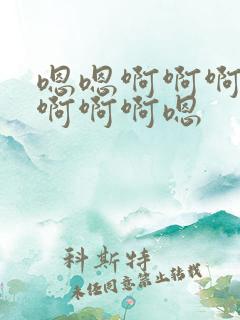 嗯嗯啊啊啊
啊啊啊嗯
科斯特
未经同意禁止转载